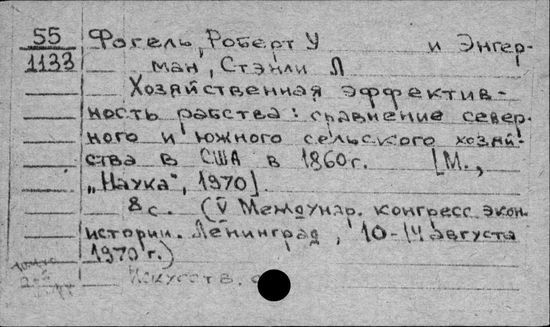 55
1133
Фогель, Роберт У и Энгер-
ман, Стэнли Л
Хозяйственная эффектив-
ность рабства: сравнение север-
ного и южного сельского хозяй-
ства в США в 1860г. [М.,
„Наука", 1970].
8 с. (V Междунар. конгресс экон.
истории. Ленинград, 10-14 августа
1970 г.)
Искусств.